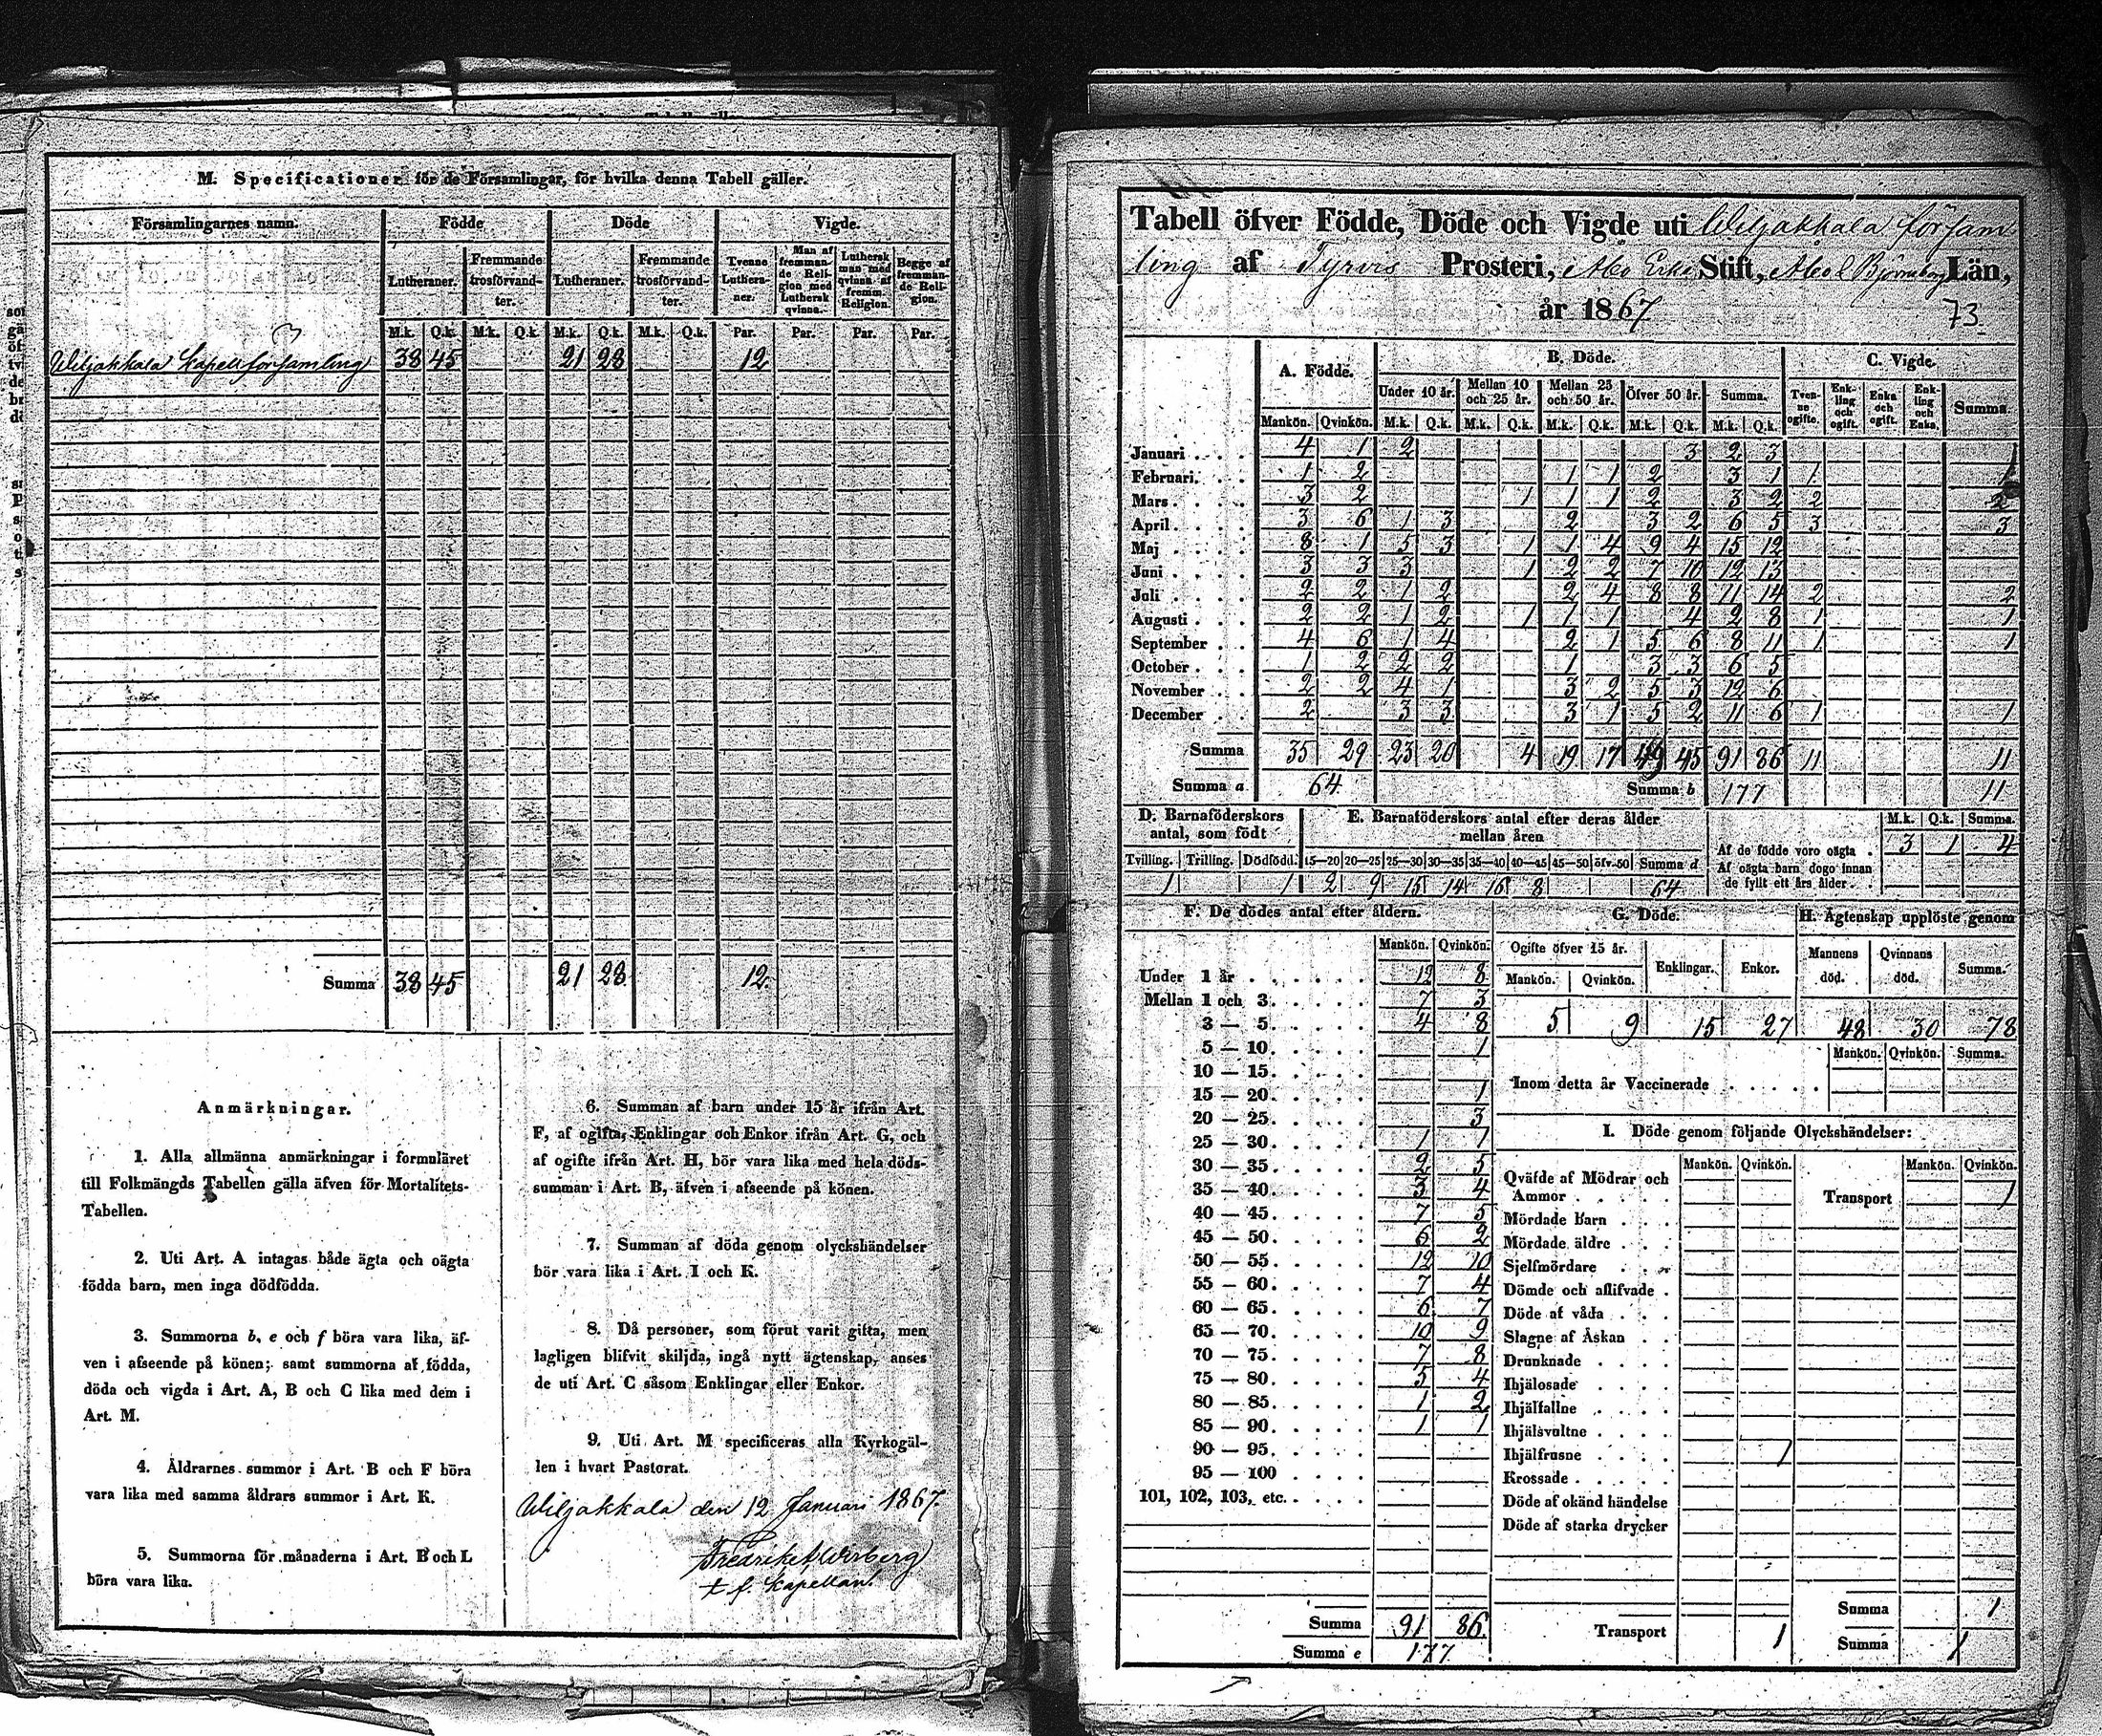 M. Specificationer för de Församlingar, för hvilka denna Tabell gäller.
Församlingarnes namn. Födde Döde Vigde.
Lutheraner. Fremmande trosförvandter. Lutheraner. Fremmande trosförvandter. Tvenne Lutheraner. Man af fremmande Religion med Luthersk qvinna. Luthersk man med qvinna af fremm. Religion. Begge af fremmande Religion.
M.k. Q.k. M.k. Q.k. M.k. Q.k. M.k. Q.k. Par. Par. Par. Par.
Wiljakkala Kapellförsamling 38 45 21 28 12
Summa 38 45 21 28 12.
Anmärkningar.
1. Alla allmänna anmärkningar i formuläret
till Folkmängds Tabellen gälla äfven för Mortalitets-
Tabellen.
2. Uti Art. A intagas både ägta och oägta
födda barn, men inga dödfödda.
3. Summorna b, e och f böra vara lika, äf-
ven i afseende på könen; samt summorna af födda,
döda och vigda i Art. A, B och C lika med dem i
Art. M.
4. Åldrarnes summor i Art. B och F böra
vara lika med samma åldrars summor i Art. K.
5. Summorna för månaderna i Art. B och L
böra vara lika.
6. Summan af barn under 15 år ifrån Art.
F, af ogifta, Enklingar och Enkor ifrån Art. G, och
af ogifte ifrån Art. H, bör vara lika med hela döds-
summan i Art. B, äfven i afseende på könen.
7. Summan af döda genom olyckshändelser
bör vara lika i Art. I och K.
8. Då personer, som förut varit gifta, men
lagligen blifvit skiljda, ingå nytt ägtenskap, anses
de uti Art. C såsom Enklingar eller Enkor.
9. Uti Art. M specificeras alla Kyrkogäl-
len i hvart Pastorat.
Wiljakkala den 12 Januari 1867.
t. f. Kapellan.
Tabell öfver Födde, Döde och Vigde uti Wiljakkala försam
ling af Tyrvis Prosteri, Åbo Erke Stift, Åbo & Björneborg Län,
år 1867 73
A. Födde. B. Döde. C. Vigde.
Under 10 år. Mellan 10 och 25 år. Mellan 25 och 50 år. Öfver 50 år. Summa. Tvenne ogifte. Enkling och ogift. Enka och ogift. Enkling och Enka. Summa.
Mankön. Qvinkön. M.k. Q.k. M.k. Q.k. M.k. Q.k. M.k. Q.k. M.k. Q.k.
Januari 4 1 2 3 2 3 1
Februari. 1 2 1 1 2 3 1 1 1
Mars 3 2 1 1 1 2 3 2 2 2
April 3 6 1 3 2 3 2 6 5 3 3
Maj 8 1 5 3 1 1 4 9 4 15 12
Juni 3 3 3 1 2 2 7 10 12 13
Juli 2 2 1 2 2 4 8 8 11 14 2 2
Augusti 2 2 1 2 1 1 1 4 2 8 1 1
September 4 6 1 4 2 1 5 6 8 11 1 1
October 1 2 2 2 1 3 3 6 5
November 2 2 4 1 3 2 5 3 12 6
December 2 3 3 3 1 5 2 11 6 1 1
Summa 35 29 23 20 4 19 17 49 45 91 86 11 11
Summa a 64 Summa b 177 11
D. Barnaföderskors antal, som födt
Tvilling. Trilling. Dödfödd.
1 1
E. Barnaföderskors antal efter deras ålder mellan åren
15—20 20—25 25—30 30—35 35—40 40—45 45—50 öfv. 50 Summa d
2 9 15 14 16 8 64
M.k. Q.k. Summa.
Af de födde voro oägta . 3 1 4
Af oägta barn dogo innan
de fyllt ett års ålder
F. De dödes antal efter åldern.
Mankön. Qvinkön.
Under 1 år 12 8
Mellan 1 och 3. 7 3
3 — 5. 4 8
5 — 10. 1
10 — 15.
15 — 20. 1
20 — 25. 3
25 — 30. 1 1
30 — 35. 2 5
35 — 40. 3 4
40 — 45. 7 5
45 — 50. 6 2
50 — 55. 12 10
55 — 60. 7 4
60 — 65. 6 7
65 — 70. 10 9
70 — 75. 7 8
75 — 80. 5 4
80 — 85. 1 2
85 — 90. 1 1
90 — 95.
95 — 100
101, 102, 103, etc.
Summa 91 86.
Summa e 177
G. Döde.
Ogifte öfver 15 år. Enklingar. Enkor.
Mankön. Qvinkön.
5 9 15 27
H. Ägtenskap upplöste genom
Mannens död. Qvinnans död. Summa.
48 30 78
Mankön. Qvinkön. Summa.
Inom detta år Vaccinerade
I. Döde genom följande Olyckshändelser:
Mankön. Qvinkön. Mankön. Qvinkön.
Qväfde af Mödrar och
Ammor
Mördade Barn
Mördade äldre
Sjelfmördare
Dömde och aflifvade
Döde af våda
Slagne af Åskan
Drunknade
Ihjälosade
Ihjälfallne
Ihjälsvultne
Ihjälfrusne 1
Krossade
Döde af okänd händelse
Döde af starka drycker
Transport 1
Transport 1
Summa 1
Summa 1